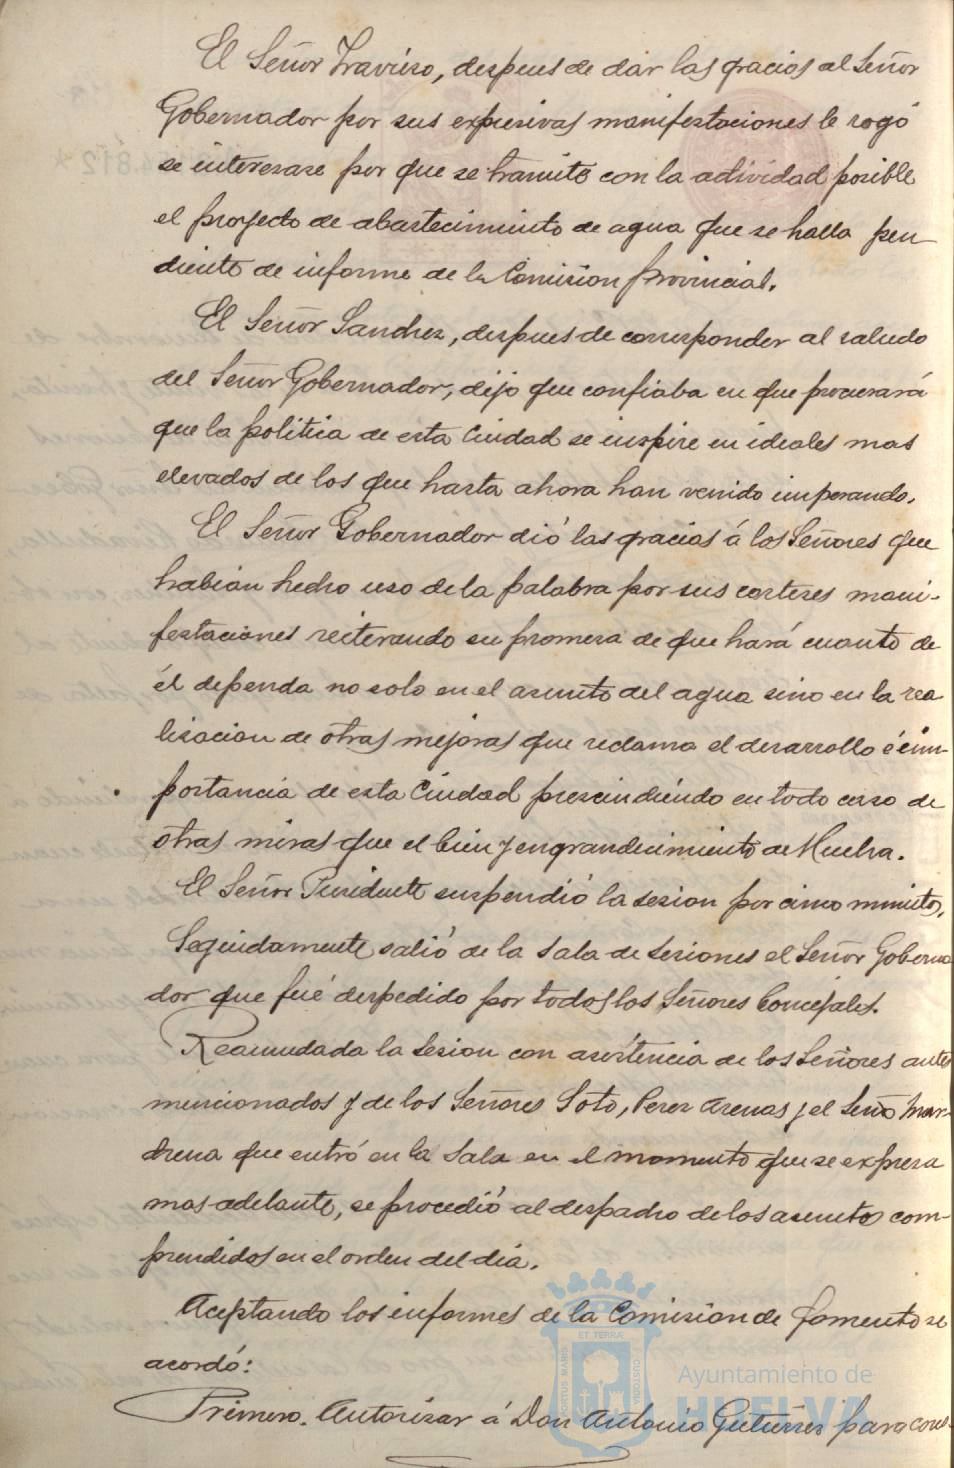 El Señor Travieso, despues de dar las gracias al Señor
Gobernador por sus expresivas manifestaciones le rogó
se interesase por que se tramite con la actividad posible
el proyecto de abastecimiento de agua que se halla pen
diente de informe de la Comision provincial.
El Señor Sanchez, despues de corresponder al saludo
del Señor Gobernador, dijo que confiaba en que procurará
que la politica de esta Ciudad se inspire en ideales mas
elevados de los que hasta ahora han venido imperando.
El Señor Gobernador dió las gracias á los Señores que
habian hecho uso de la palabra por sus corteses mani-
festaciones reiterando su promesa de que hará cuanto de
él dependa no solo en el asunto del agua sino en la rea
lisacion de otras mejoras que reclama el desarrollo é im-
portancia de esta Ciudad prescindiendo en todo caso de
otras miras que el bien y engrandecimiento de Huelva.
El Señor Presidente suspendió la sesion por cinco minutos.
Seguidamente salió de la Sala de Sesiones el Señor Goberna
dor que fué despedido por todos los Señores Concejales.
Reanudada la Sesion con asistencia de los Señores antes
mencionados y de los Señores Soto, Perez Arenas y el Señor Mar-
chena que entró en la Sala en el momento que se expresa
mas adelante, se procedió al despacho de los asuntos com-
prendidos en el orden del dia.
Aceptando los informes de la Comision de fomento se
acordó:
Primero. Autorizar á Don Antonio Gutierrez para cons-
PORTUS MARIS ET TERRÆ CUSTODIA
Ayuntamiento de
HUELVA